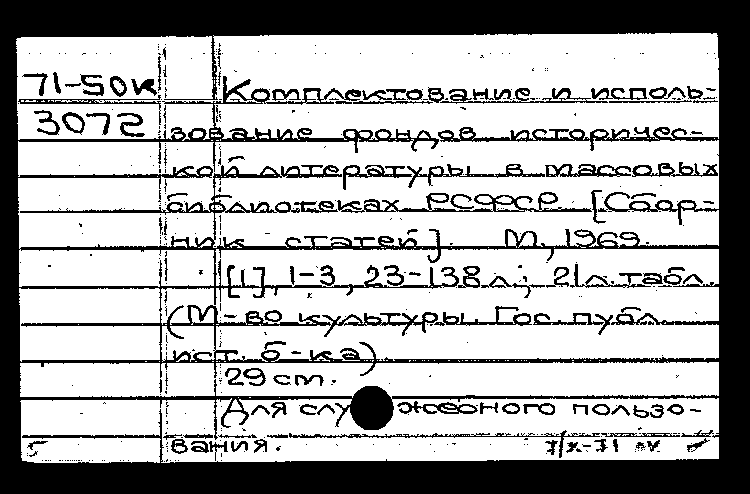 71-50к Комплектование и исполь-
3072 зование фондов историчес-
кой литературы в массовых
библиотеках РСФСР. [Сбор-
ник статей]. М., 1969.
[1], 1-3, 23-138 л.; 21 л. табл.
(М-во культуры. Гос. публ.
ист. б-ка)
29 cm.
Для служебного пользо-
вания.